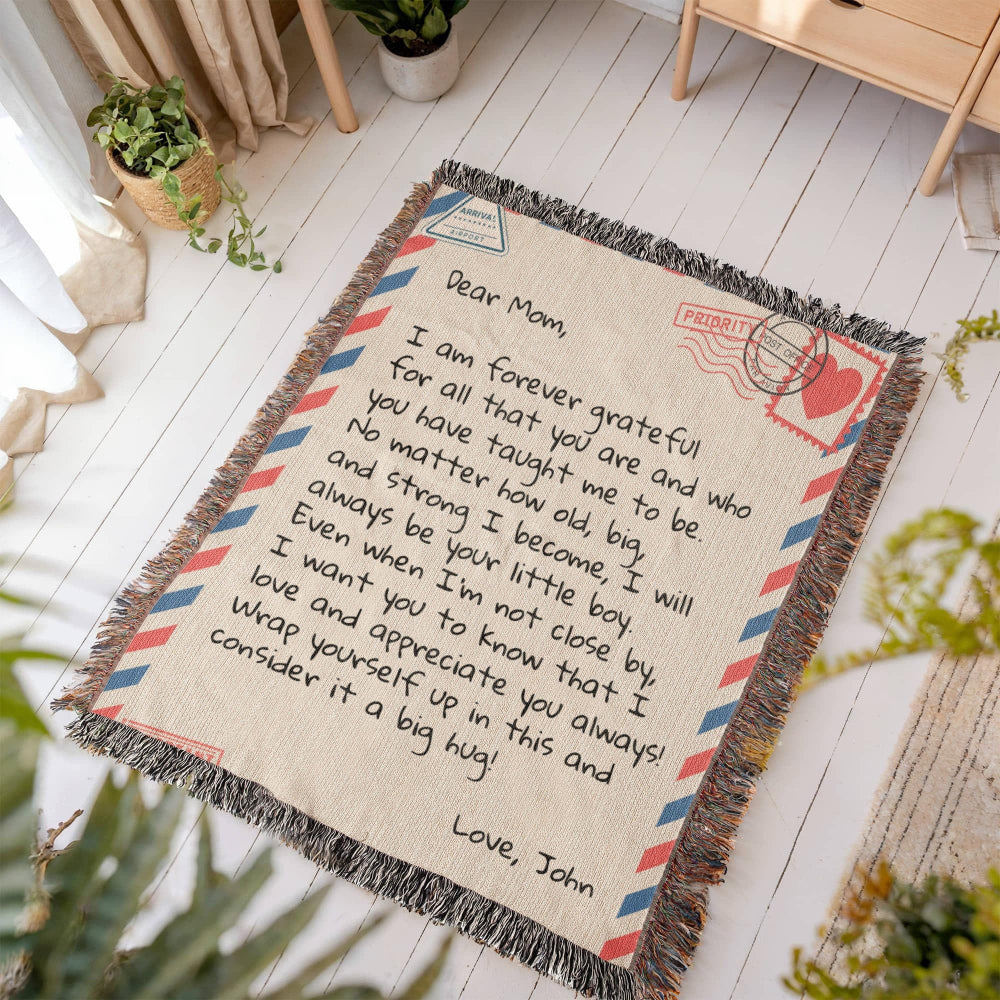 ARRIVAL
AIRPORT
PRIORITY
POST OFFICE
Dear Mom,
I am forever grateful
for all that you are and who
you have taught me to be.
No matter how old, big,
and strong I become, I will
always be your little boy.
Even when I'm not close by,
I want you to know that I
love and appreciate you always!
Wrap yourself up in this and
consider it a big hug!
Love, John